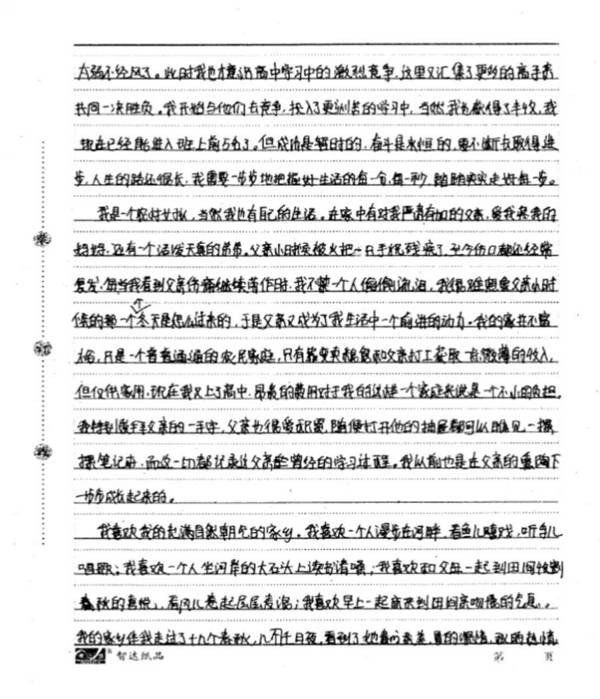 太弱不经风了。此时我也才意识高中学习中的激烈竞争,这里又汇集了更多的高手者
共同一决胜负。我开始与他们去竞争,投入了更刻苦的学习中,当然我也赢得了丰收,我
现在已经能进入班上前5名了。但成功是暂时的,奋斗是永恒的,要不断去取得进
步,人生的路还很长,我需要一步步地把握好生活的每一分,每一秒,踏踏实实走好每一步。
我是一个农村女孩,当然我也有自己的生活。在家中有对我严肃有加的父亲,爱我美我的
妈妈,还有一个活泼天真的弟弟。父亲小时候被火把一只手烧残疾了,至今伤口都还经常
复发,每当我看到父亲伤痛继续发作时,我不禁一个人偷偷流泪,我很难想象父亲小时
候的那一个个冬天是怎么过来的,于是父亲又成为了我生活中一个前进的动力。我的家并不富
裕,只是一个普普通通的农民家庭,只有靠变卖粮食和父亲打工获取一点微薄的收入,
但仅供家用,现在我又上了高中,昂贵的费用对于我的这样一个家庭来说是一个不小的负担。
我特别佩服父亲的一手字,父亲也很爱写,随便打开他的抽屉都可以瞧见一摞
摞笔记本,而这一切都记录这父亲曾经的学习历程。我从前也是在父亲的熏陶下
一步步成长起来的。
我喜欢我的充满自然朝气的家乡。我喜欢一个人漫步在河畔,看鱼儿嬉戏,听鸟儿
唱歌;我喜欢一个人坐河岸的大石头上读书清唱;我喜欢和父母一起到田间收割
春秋的喜悦,看风儿卷起层层麦浪;我喜欢早上一起床来到田间亲吻的气息。
我的家乡伴我走过了十九个春秋,几千日夜,看到了她春的美,夏的激情,秋的热情
智达纸品
第 页